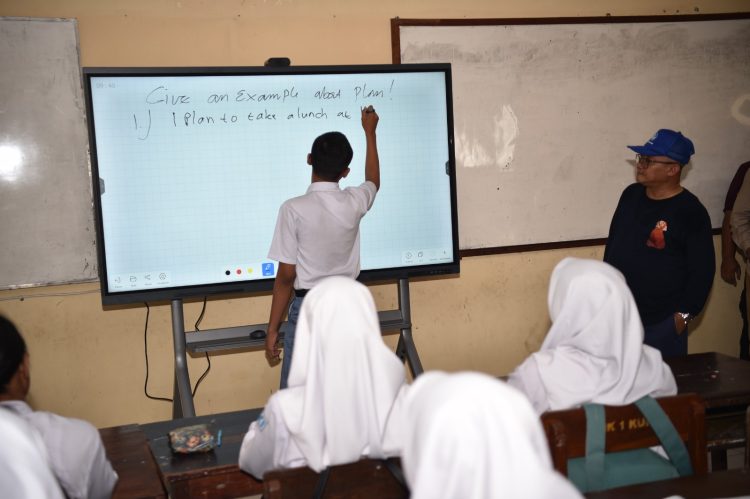 09:40
Give an Example about Plan!
1.) I Plan to take a lunch at
K 1 KU